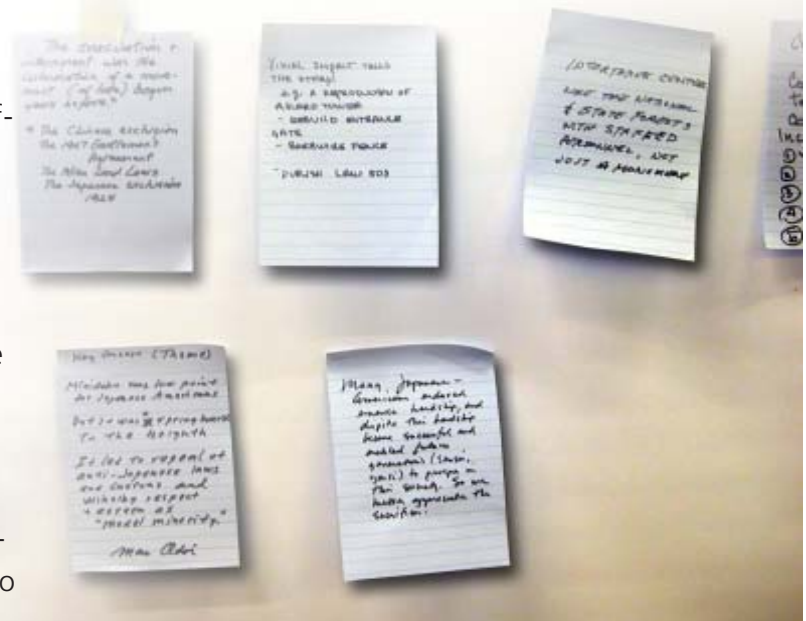 The Incarceration +
internment was the
culmination of a move-
ment (of hate) begun
years before."
* The Chinese exclusion
The 1907 Gentlemen's
Agreement
The Alien Land Laws
The Japanese exclusion
1924
VISUAL IMPACT TELLS
THE STORY!
e.g. A REPRODUCTION OF
A GUARD TOWER
- REBUILD ENTRANCE
GATE
- BARBWIRE FENCE
INTERPRETIVE CENTER
LIKE THE NATIONAL
& STATE FORESTS
WITH STAFFED
PERSONNEL, NOT
JUST A MONUMENT
Inc
①
②
③
④
⑤
Key (Theme)
Minidoka was low point
for Japanese Americans
But it was a springboard
to the heighth
It led to repeal of
anti-Japanese laws
and customs and
winning respect
+ esteem as
"model minority."
Many Japanese-
Americans endured
hardship, and
dispite this hardship
became successful and
enabled future
generations (Sansei,
Yonsei) to prosper in
this society. So we
better appreciate the
sacrifices.